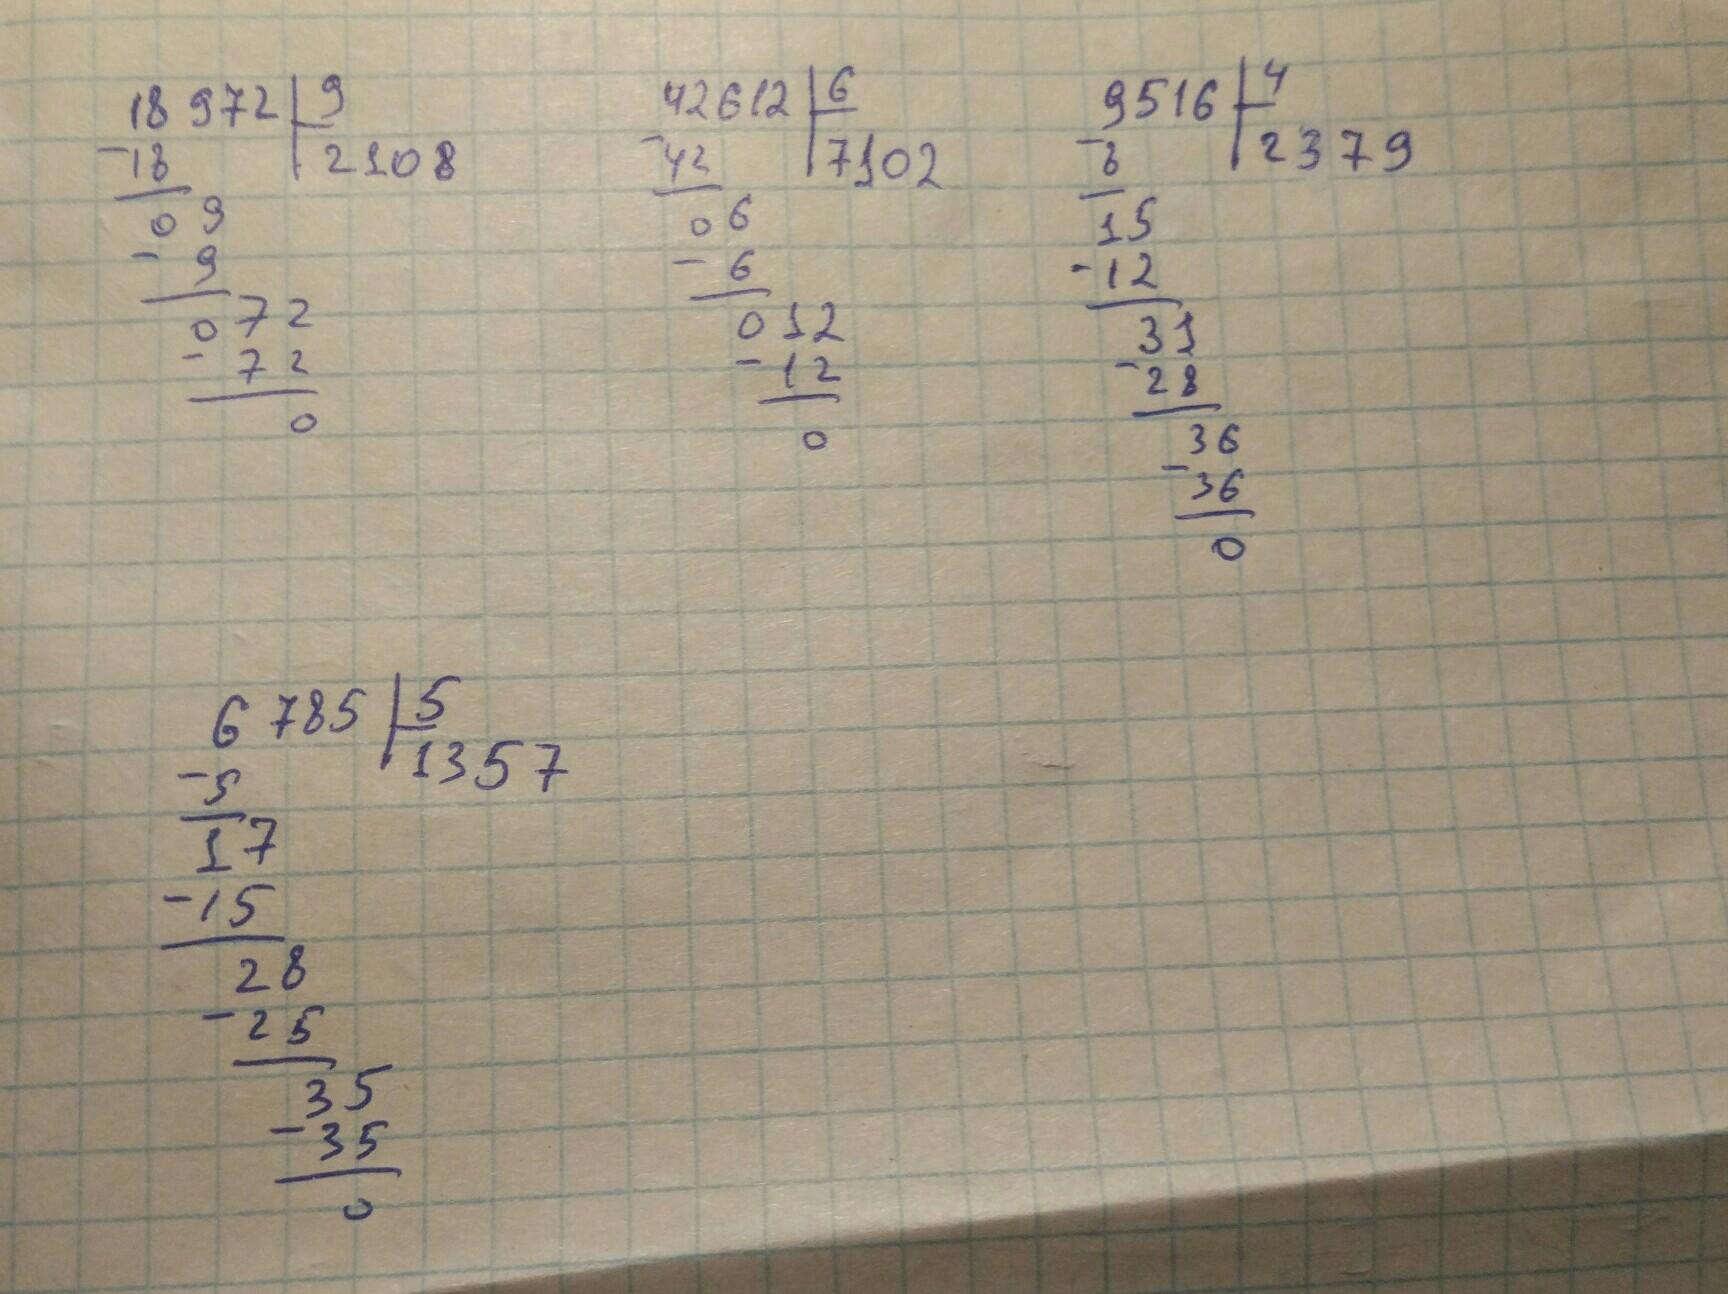 18972 9
-18 2108
09
- 9
072
- 72
0
42612 6
-42 7102
06
- 6
012
- 12
0
9516 4
-8 2379
15
-12
31
-28
36
-36
0
6785 5
-5 1357
17
-15
28
-25
35
-35
0